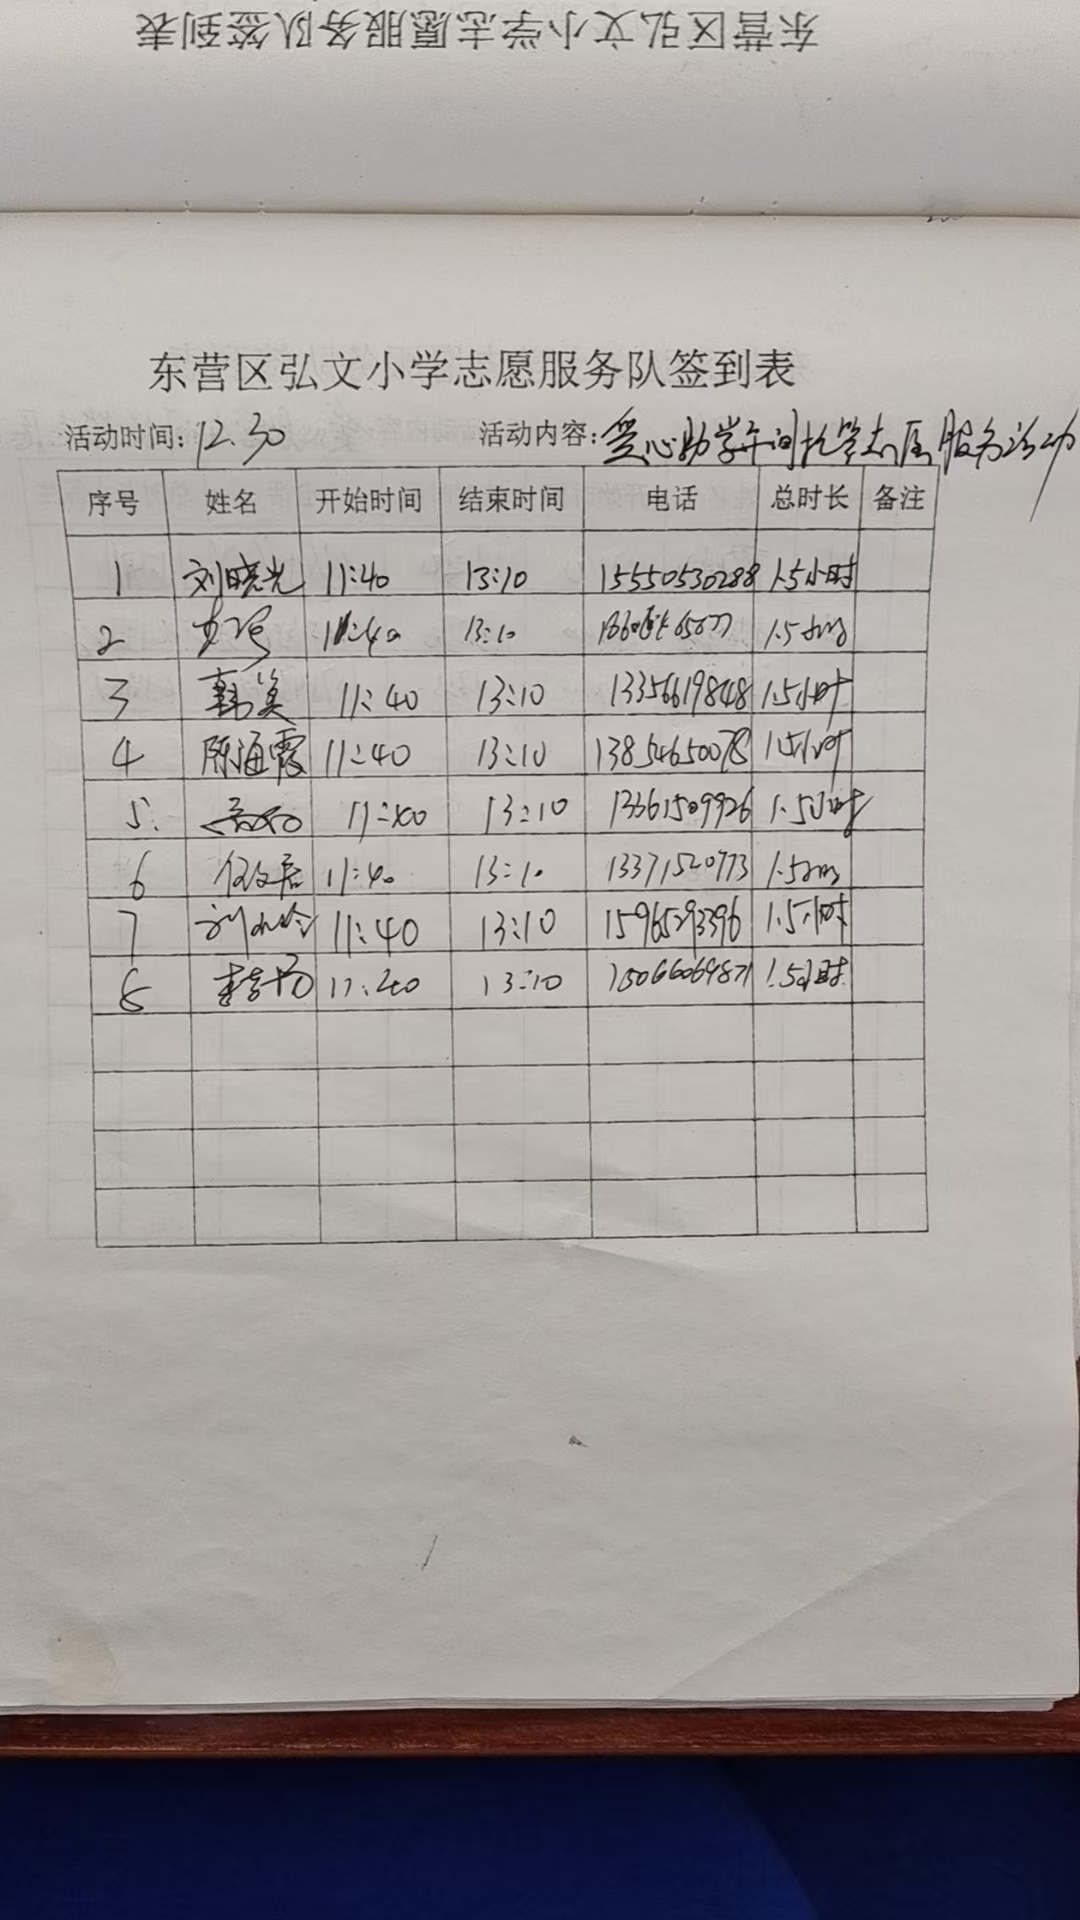 东营区弘文小学志愿服务队签到表
东营区弘文小学志愿服务队签到表
活动时间:12.30 活动内容:爱心助学午间托管志愿服务活动
序号 姓名 开始时间 结束时间 电话 总时长 备注
1 刘晓光 11:40 13:10 15550530288 1.5小时
2 11:40 13:10 1.5小时
3 韩美 11:40 13:10 13356619848 1.5小时
4 陈海霞 11:40 13:10 13854650078 1.5小时
5. 11:40 13:10 13361509926 1.5小时
6 11:40 13:10 13371520773 1.5小时
7 11:40 13:10 15965293396 1.5小时
8 11:40 13:10 15066069871 1.5小时